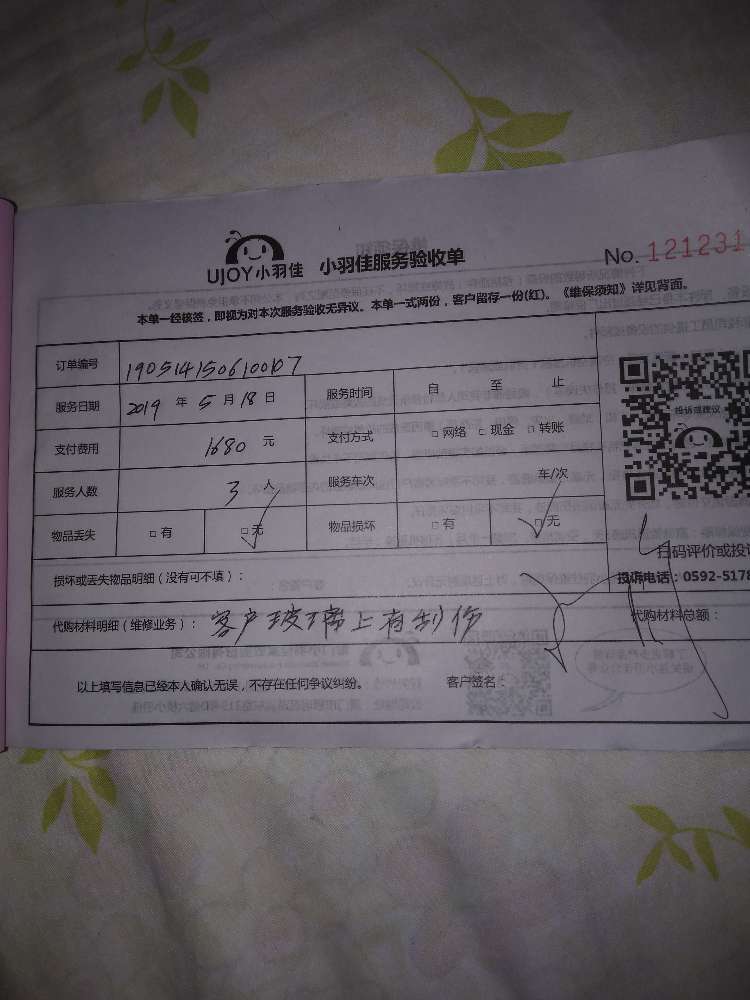 UJOY小羽佳 小羽佳服务验收单 No. 121231
本单一经核签，即视为对本次服务验收无异议。本单一式两份，客户留存一份(红)。《维保须知》详见背面。
订单编号 190514150610007
服务日期 2019 年 5 月 18 日 服务时间 自 至 止
支付费用 1680 元 支付方式 □网络 □现金 □转账
服务人数 3 人 服务车次 车/次
投诉或建议
物品丢失 □有 □无 物品损坏 □有 □无
扫码评价或投
损坏或丢失物品明细（没有可不填）：
投诉电话：0592-5178
代购材料明细（维修业务）：客户玻璃上有刮伤
代购材料总额：
以上填写信息已经本人确认无误，不存在任何争议纠纷。 客户签名：